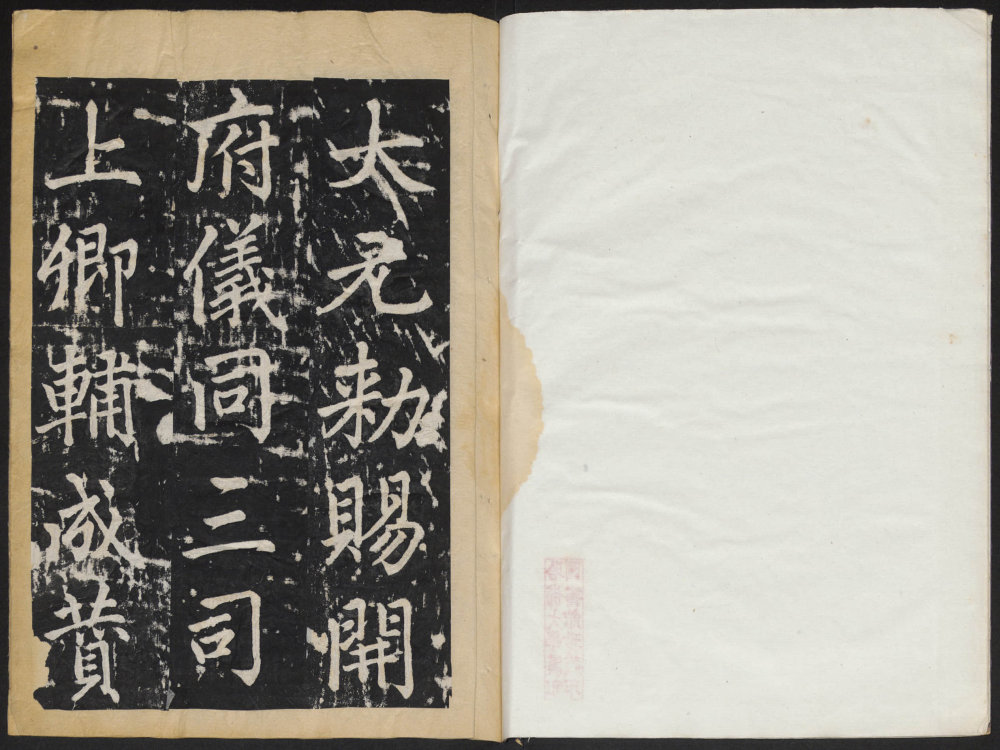 大元勑賜開
府儀同三司
上卿輔成賛